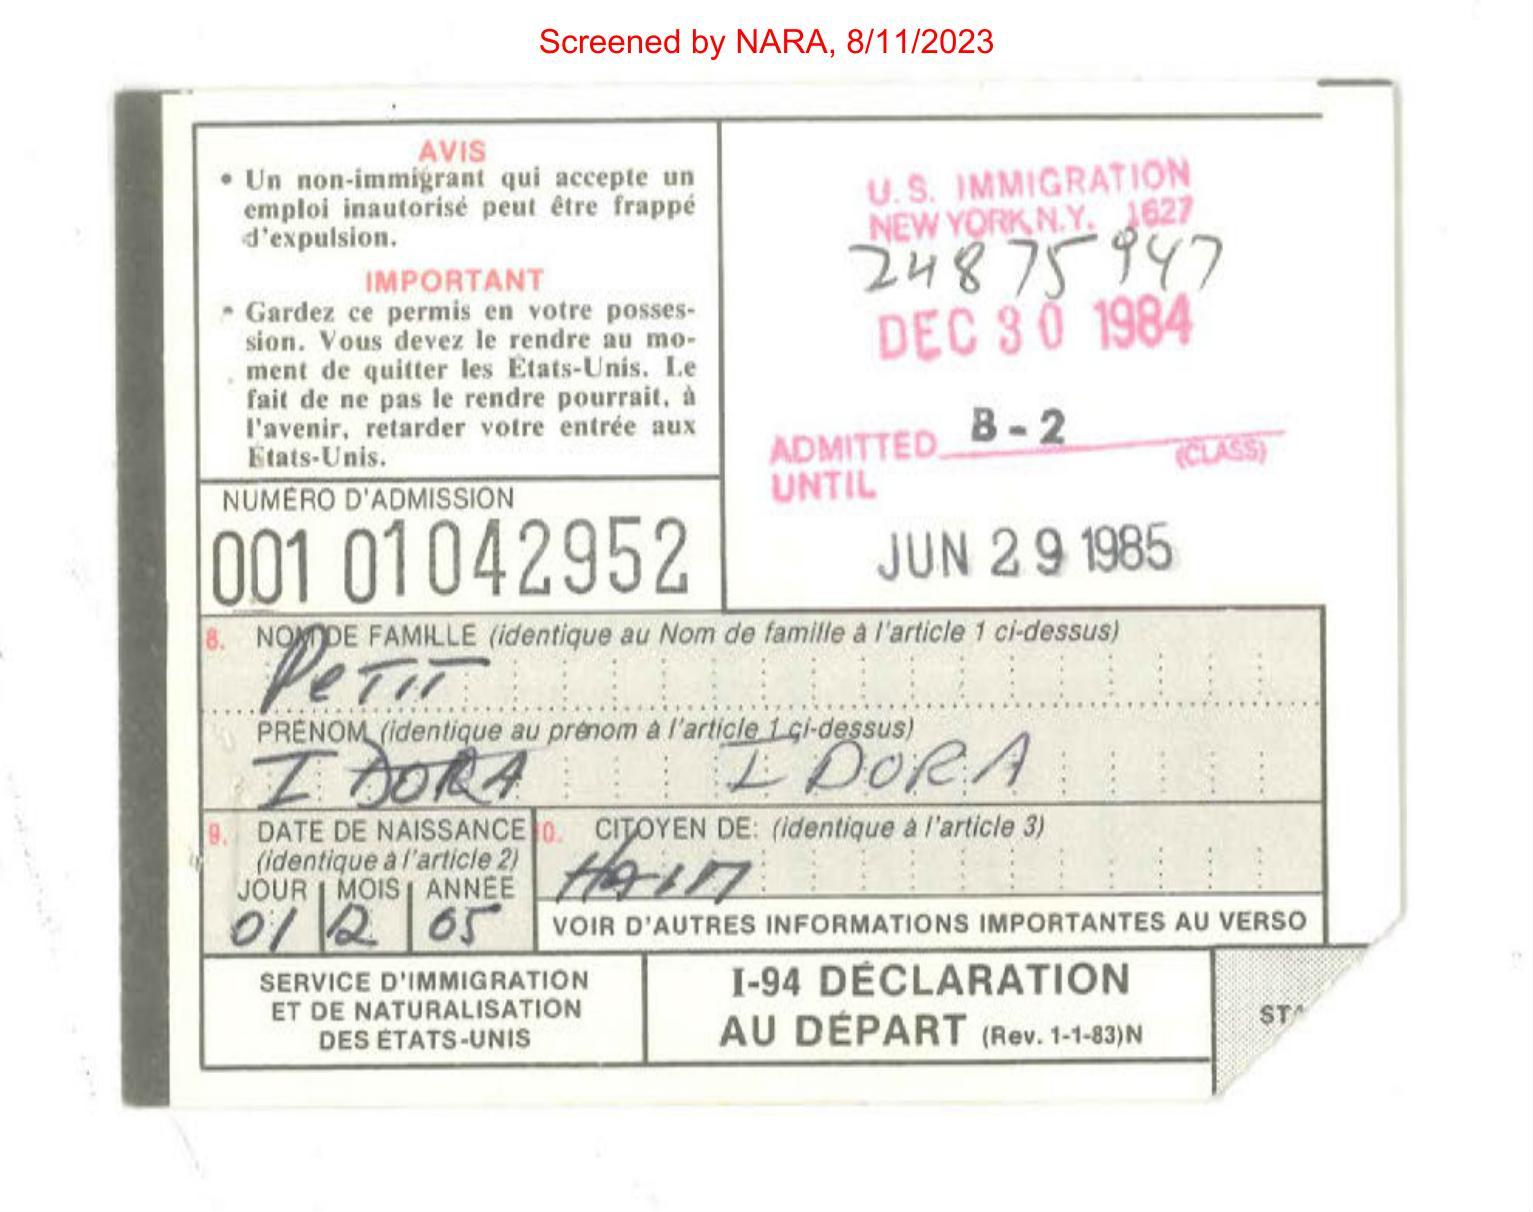 Screened by NARA, 8/11/2023
AVIS
• Un non-immigrant qui accepte un
emploi inautorisé peut être frappé
d'expulsion.
IMPORTANT
• Gardez ce permis en votre posses-
sion. Vous devez le rendre au mo-
ment de quitter les États-Unis. Le
fait de ne pas le rendre pourrait, à
l'avenir, retarder votre entrée aux
États-Unis.
U.S. IMMIGRATION
NEW YORK, N.Y. 1627
24875947
DEC 30 1984
ADMITTED B-2
(CLASS)
UNTIL
JUN 29 1985
NUMÉRO D'ADMISSION
001 01042952
8. NOM DE FAMILLE (identique au Nom de famille à l'article 1 ci-dessus)
PETIT
PRÉNOM (identique au prénom à l'article 1 ci-dessus)
IDORA IDORA
9. DATE DE NAISSANCE
(identique à l'article 2)
JOUR MOIS ANNÉE
01 12 05
10. CITOYEN DE: (identique à l'article 3)
VOIR D'AUTRES INFORMATIONS IMPORTANTES AU VERSO
SERVICE D'IMMIGRATION
ET DE NATURALISATION
DES ÉTATS-UNIS
I-94 DÉCLARATION
AU DÉPART (Rev. 1-1-83)N